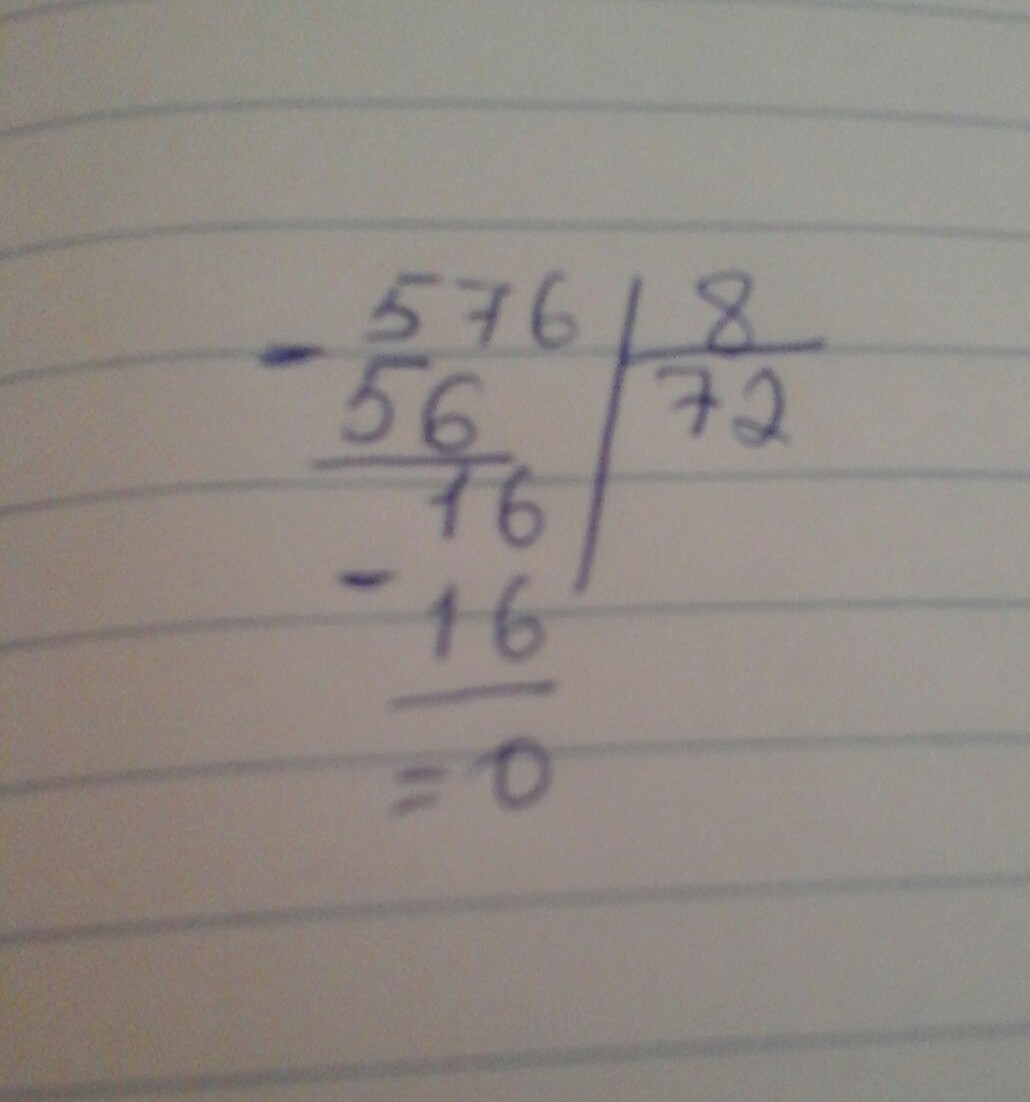 - 576 | 8
56 | 72
16
- 16
= 0